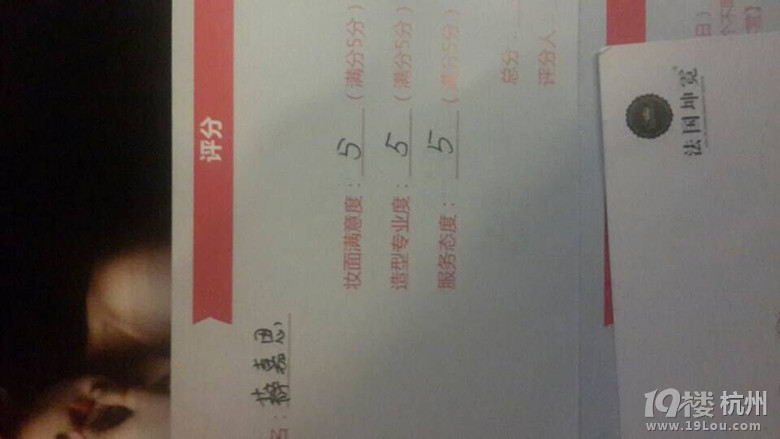 评分
名：薛嘉思
妆面满意度：5（满分5分）
造型专业度：5（满分5分）
服务态度：5（满分5分）
总分：
评分人
法国坤宽
19楼 杭州
www.19Lou.com